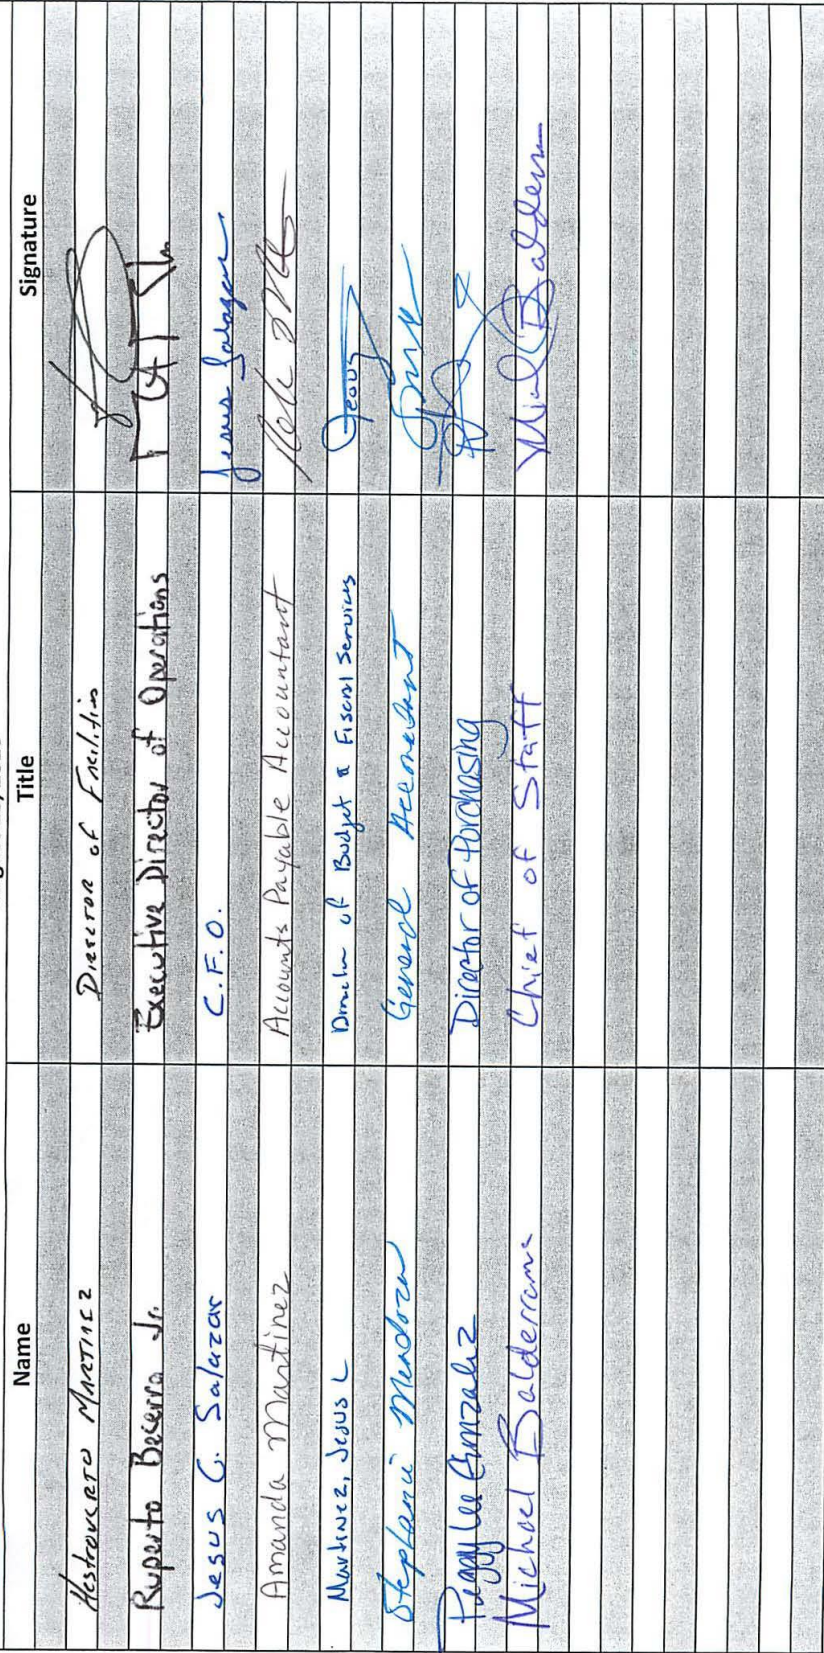 Name Title Signature
Hestroverto Martinez Director of Facilities
Ruperto Becerra Jr. Executive Director of Operations
Jesus C. Salazar C.F.O. Jesus Salazar
Amanda Martinez Accounts Payable Accountant
Martinez, Jesus L of Budget & Fiscal Services
Stephanie Mendoza General Accountant
Peggy Lee Gonzalez Director of Purchasing
Michael Balderrama Chief of Staff